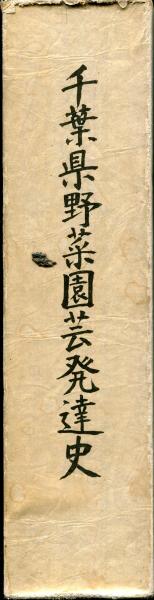 千葉県野菜園芸発達史